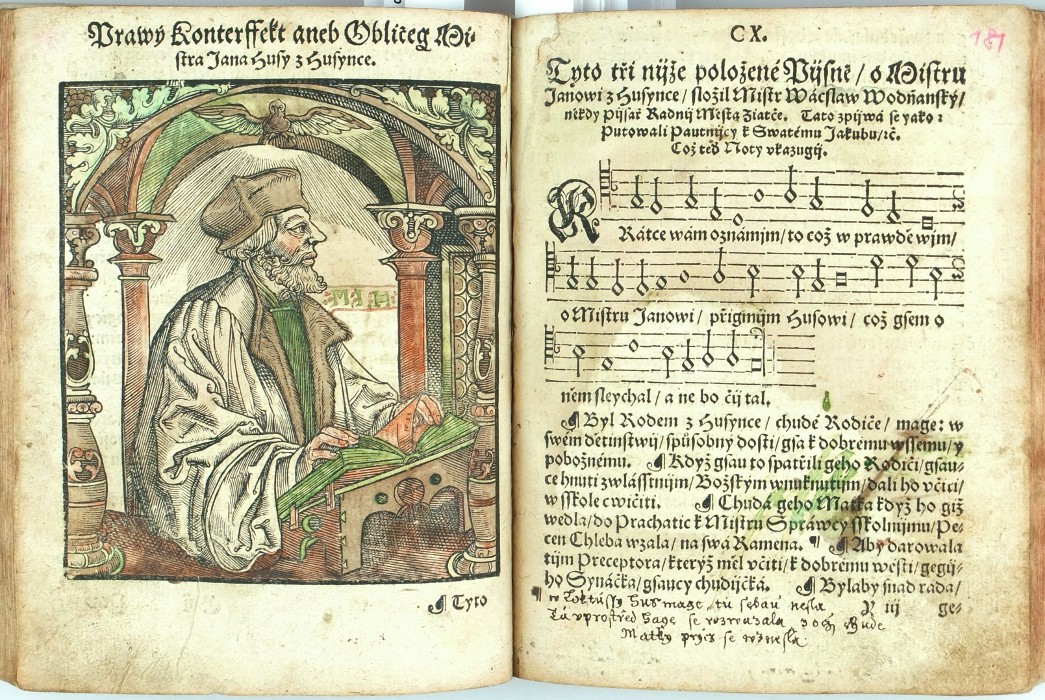 Prawý Konterffekt aneb Obličeg Mi-
stra Jana Husy z Husynce.
M. I. H.
¶ Tyto
CX.
181
Tyto tři nijže položené Pijsně / o Mistru
Janowi z Husynce / složil Mistr Wácslaw Wodňanský /
někdy Pijsař Radnij Města Žiatče. Tato zpijwá se yako :
Putowali Pautnijcy k Swatému Jakubu / ꝛc.
Což teď Noty vkazugij.
KRátce wám oznámjm / to což w prawdě wjm /
o Mistru Janowi / přigmijm Husowi / což gsem o
něm sleychal / a ne bo čij tal.
¶ Byl Rodem z Husynce / chudé Rodiče / mage: w
swém dětinstwij / spůsobný dosti / gsa k dobrému wssemu / y
pobožnému. ¶ Když gsau to spatřili geho Rodiči / gsau-
ce hnuti zwlásstnijm / Božským wnuknutijm / dali ho včiti /
w sskole cwičiti. ¶ Chudá geho Matka když ho giž
wedla / do Prachatic k Mistru Spráwcy sskolnijmu / Pe-
cen Chleba wzala / na swá Ramena. ¶ Aby darowala
tijm Preceptora / kterýž měl včiti / k dobrému wésti / gegij-
ho Synáčka / gsaucy chudijčká. ¶ Bylaby snad rada /
R iij ge-
Hus mage, tu sebau nesla
se rozwázala
Matky pryč se wznesla